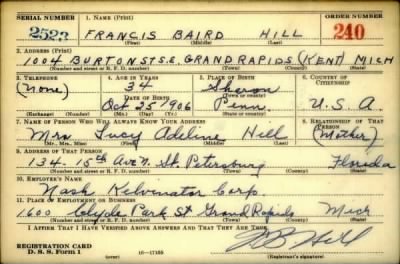 SERIAL NUMBER 1. NAME (Print) ORDER NUMBER
2523 FRANCIS BAIRD HILL 240
(First) (Middle) (Last)
2. ADDRESS (Print)
1004 BURTON ST S.E. GRAND RAPIDS (KENT) MICH
(Number and street or R. F. D. number) (Town) (County) (State)
3. TELEPHONE 4. AGE IN YEARS 5. PLACE OF BIRTH 6. COUNTRY OF CITIZENSHIP
(None) 34 Sharon
DATE OF BIRTH (Town or county)
Oct 25 1906 Penn. U.S.A.
(Exchange) (Number) (Mo.) (Day) (Yr.) (State or country)
7. NAME OF PERSON WHO WILL ALWAYS KNOW YOUR ADDRESS 8. RELATIONSHIP OF THAT PERSON
Mrs Lucy Adeline Hill (Mother)
(Mr., Mrs., Miss) (First) (Middle) (Last)
9. ADDRESS OF THAT PERSON
134 15th Ave N. St. Petersburg Florida
(Number and street or R. F. D. number) (Town) (County) (State)
10. EMPLOYER'S NAME
Nash Kelvinator Corp.
11. PLACE OF EMPLOYMENT OR BUSINESS
1600 Clyde Park St Grand Rapids Mich
(Number and street or R. F. D. number) (Town) (County) (State)
I AFFIRM THAT I HAVE VERIFIED ABOVE ANSWERS AND THAT THEY ARE TRUE.
REGISTRATION CARD
D. S. S. Form 1 16—17105 (Registrant's signature)